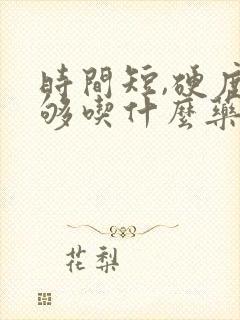 時間短,硬度
够喫什麼藥
花梨